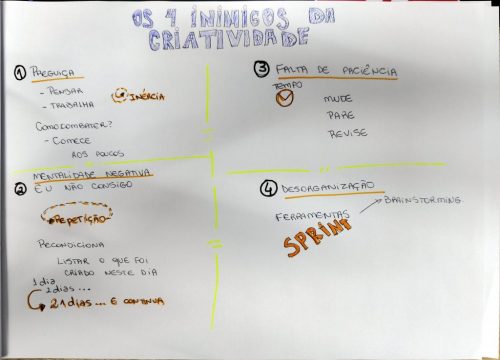 OS 4 INIMIGOS DA
CRIATIVIDADE
1 PREGUIÇA
- PENSAR
- TRABALHA
INÉRCIA
COMO COMBATER?
- COMECE
AOS POUCOS
MENTALIDADE NEGATIVA
2 EU NÃO CONSIGO
REPETIÇÃO
RECONDICIONA
LISTAR O QUE FOI
CRIADO NESTE DIA
1 dia
2 dias...
21 dias... E CONTINUA
3 FALTA DE PACIÊNCIA
TEMPO
MUDE
PARE
REVISE
4 DESORGANIZAÇÃO
FERRAMENTAS
BRAINSTORMING
SPRINT